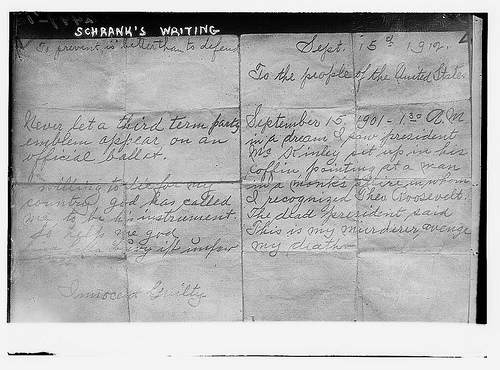 SCHRANK'S WRITING
To prevent is better than to defend
Never let a third term party
emblem appear on an
official ballot.
I willing to die for my
country, god has called
me to be his instrument
So help me god
Innocent Guilty
Sept. 15th 1912.
To the people of the United States
September 15, 1901 - 1:30 A.M.
in a dream I saw president
Mc Kinley sit up in his
Coffin, pointing at a man
in a monk's attire in whom
I recognized Theo. Roosevelt.
The dead president said
This is my murderer, avenge
my death